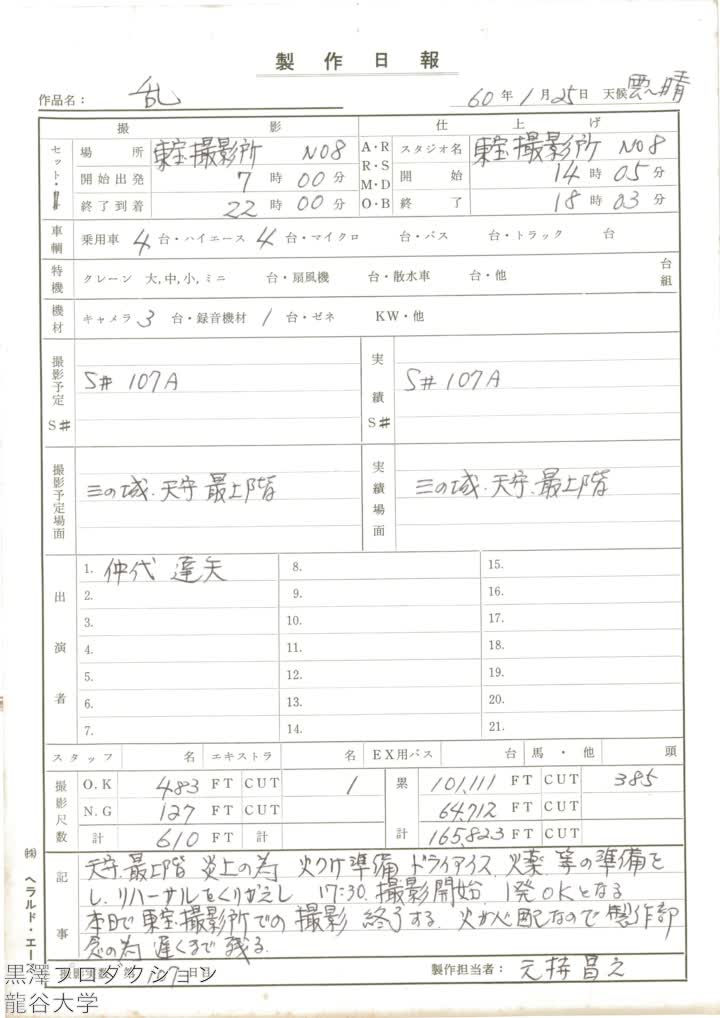 製作日報
作品名： 乱 60年1月25日 天候 曇〜晴
撮影 仕上げ
セット・ 場所 東宝撮影所 NO8 A・R スタジオ名 東宝撮影所 NO8
開始出発 7時00分 R・S 開始 14時05分
M・D
終了到着 22時00分 O・B 終了 18時03分
車輌 乗用車 4台・ハイエース 4台・マイクロ 台・バス 台・トラック 台
特機 クレーン 大,中,小,ミニ 台・扇風機 台・散水車 台・他 台組
機材 キャメラ 3台・録音機材 1台・ゼネ KW・他
撮影予定 S# S# 107A 実績 S# S# 107A
撮影予定場面 三の城・天守 最上階 実績場面 三の城・天守 最上階
出演者
1. 仲代 達矢 8. 15.
2. 9. 16.
3. 10. 17.
4. 11. 18.
5. 12. 19.
6. 13. 20.
7. 14. 21.
スタッフ 名 エキストラ 名 EX用バス 台 馬・他 頭
撮影尺数 O.K 483 FT CUT 1 累計 101,111 FT CUT 385
N.G 127 FT CUT 64,712 FT CUT
計 610 FT 計 165,823 FT CUT
記事
天守 最上階 炎上の為 火つけ準備 ドライアイス、火薬、等の準備を
し、リハーサルをくりかえし 17:30 撮影開始 1発OKとなる
本日で東宝撮影所での撮影 終了する。火が心配なので製作部
念の為 遅くまで残る。
製作担当者： 元持昌之
㈱ ヘラルド・エース
黒澤プロダクション
龍谷大学